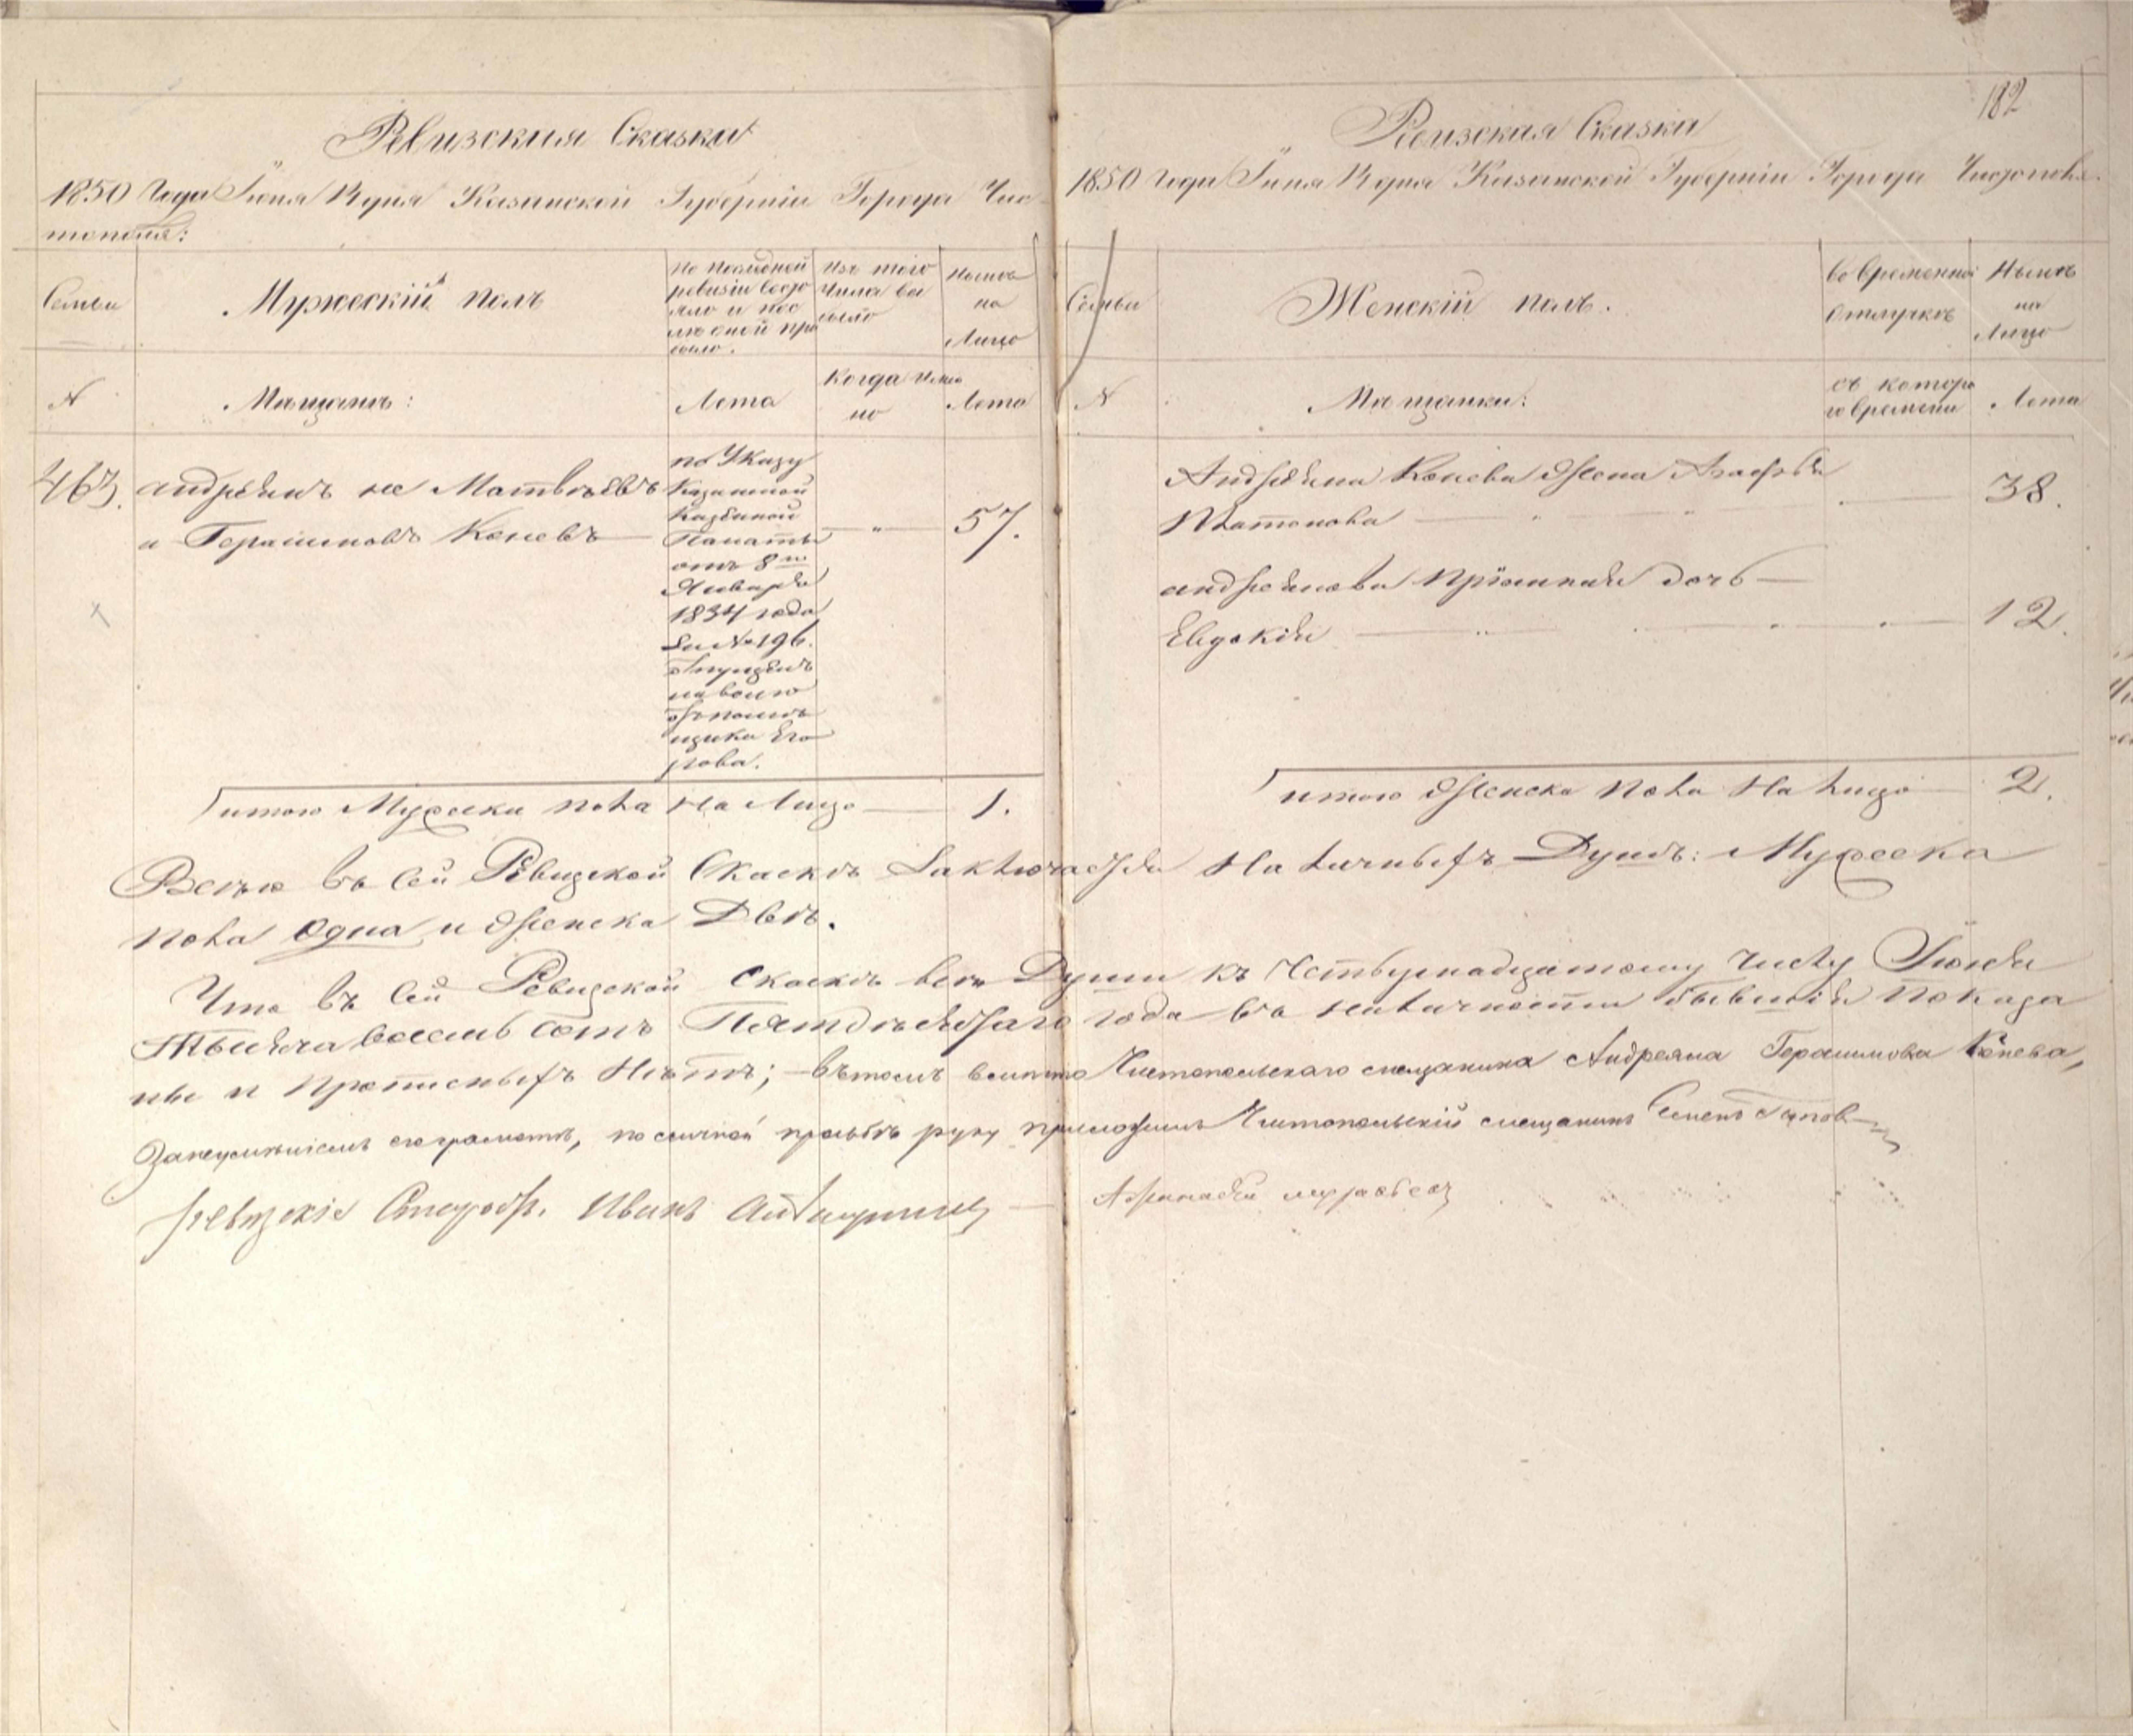 Ревизския Сказки
1850 Года Іюня 14 дня Казанской Губерніи Города Чис-
тополя:
Семьи
Мужескій полъ
По последней
ревизіи состо
яло и пос
ле оной при
было.
Изъ того
числа вы
было
Ныне
на
Лицо
№
Мещане:
Лета
Когда имен
но
Лета
463.
Андреянъ не Матвеевъ
а Герасимовъ Коневъ
по Указу
Казанской
Казенной
Палаты
отъ 8го
Января
1834 года
за № 196.
отпущенъ
на волю
отъ помѣ
щика Его
рова.
57.
итого Мужеска пола На Лицо 1.
182
Ревизския Сказки
1850 Года Іюня 14 дня Казанской Губерніи Города Чистополя.
Семьи
Женскій полъ.
Во временной
отлучкѣ
Нынѣ
на
Лицо
№
Мещанки:
съ котора
го времени
Лета
Андреяна Конева жена
Платонова
38.
Андреянова пріемная дочь
Евдокія 12.
итого Женска пола На лицо 2.
Всего въ сей Ревизской Сказкѣ Заключается На личныхъ Душъ: Мужеска
пола одна и женска Двѣ.
Что въ сей Ревизской Сказкѣ всѣ Души къ Четырнадцатому числу Іюня
Тысяча восемь сотъ Пятдесятаго года въ наличности бывшія показа
ны и прописныхъ Нѣтъ; въ томъ вместо Чистопольскаго мещанина Андреяна Герасимова Конева,
Занеумѣніемъ его грамотѣ, по личной прозьбѣ руку приложилъ Чистопольскій мещанинъ Семенъ
Ревизскіе Иванъ